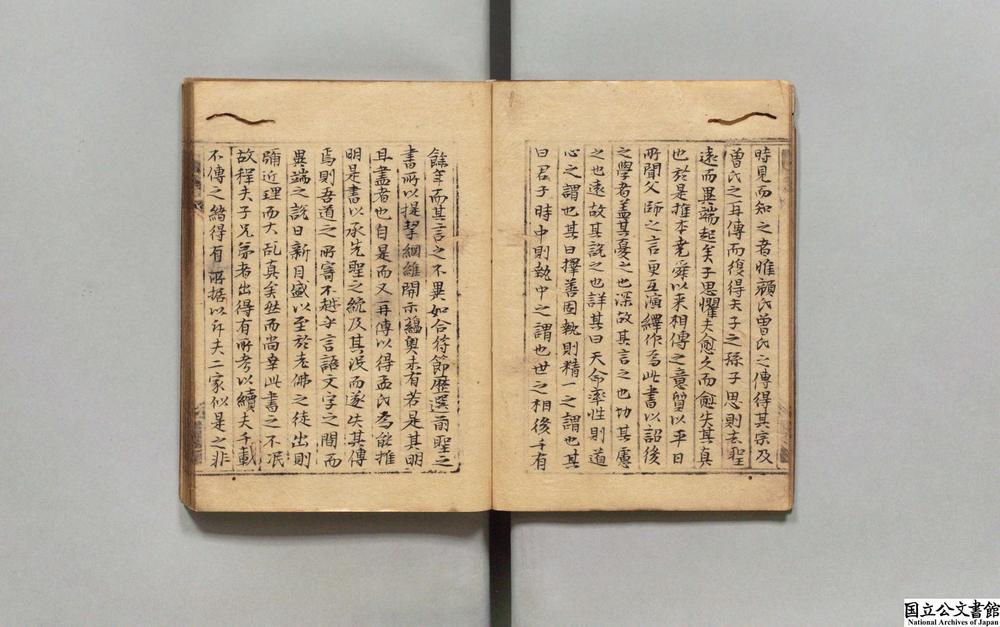 時見而知之者惟顔氏曽氏之傳得其宗及
曽氏之再傳而復得夫子之孫子思則去聖
遠而異端起矣子思懼夫愈久而愈失其真
也於是推本堯舜以来相傳之意質以平日
所聞父師之言更互演繹作為此書以詔後
之學者盖其憂之也深故其言之也切其慮
之也遠故其説之也詳其曰天命率性則道
心之謂也其曰擇善固執則精一之謂也其
曰君子時中則執中之謂也世之相後千有
餘年而其言之不異如合符節歴選前聖之
書所以提挈綱維開示蘊奥未有若是其明
且盡者也自是而又再傳以得孟氏為能推
明是書以承先聖之統及其没而遂失其傳
焉則吾道之所寄不越乎言語文字之間而
異端之説日新月盛以至於老佛之徒出則
彌近理而大乱真矣然而尚幸此書之不泯
故程夫子兄弟者出得有所考以續夫千載
不傳之緒得有所据以斥夫二家似是之非
国立公文書館
National Archives of Japan